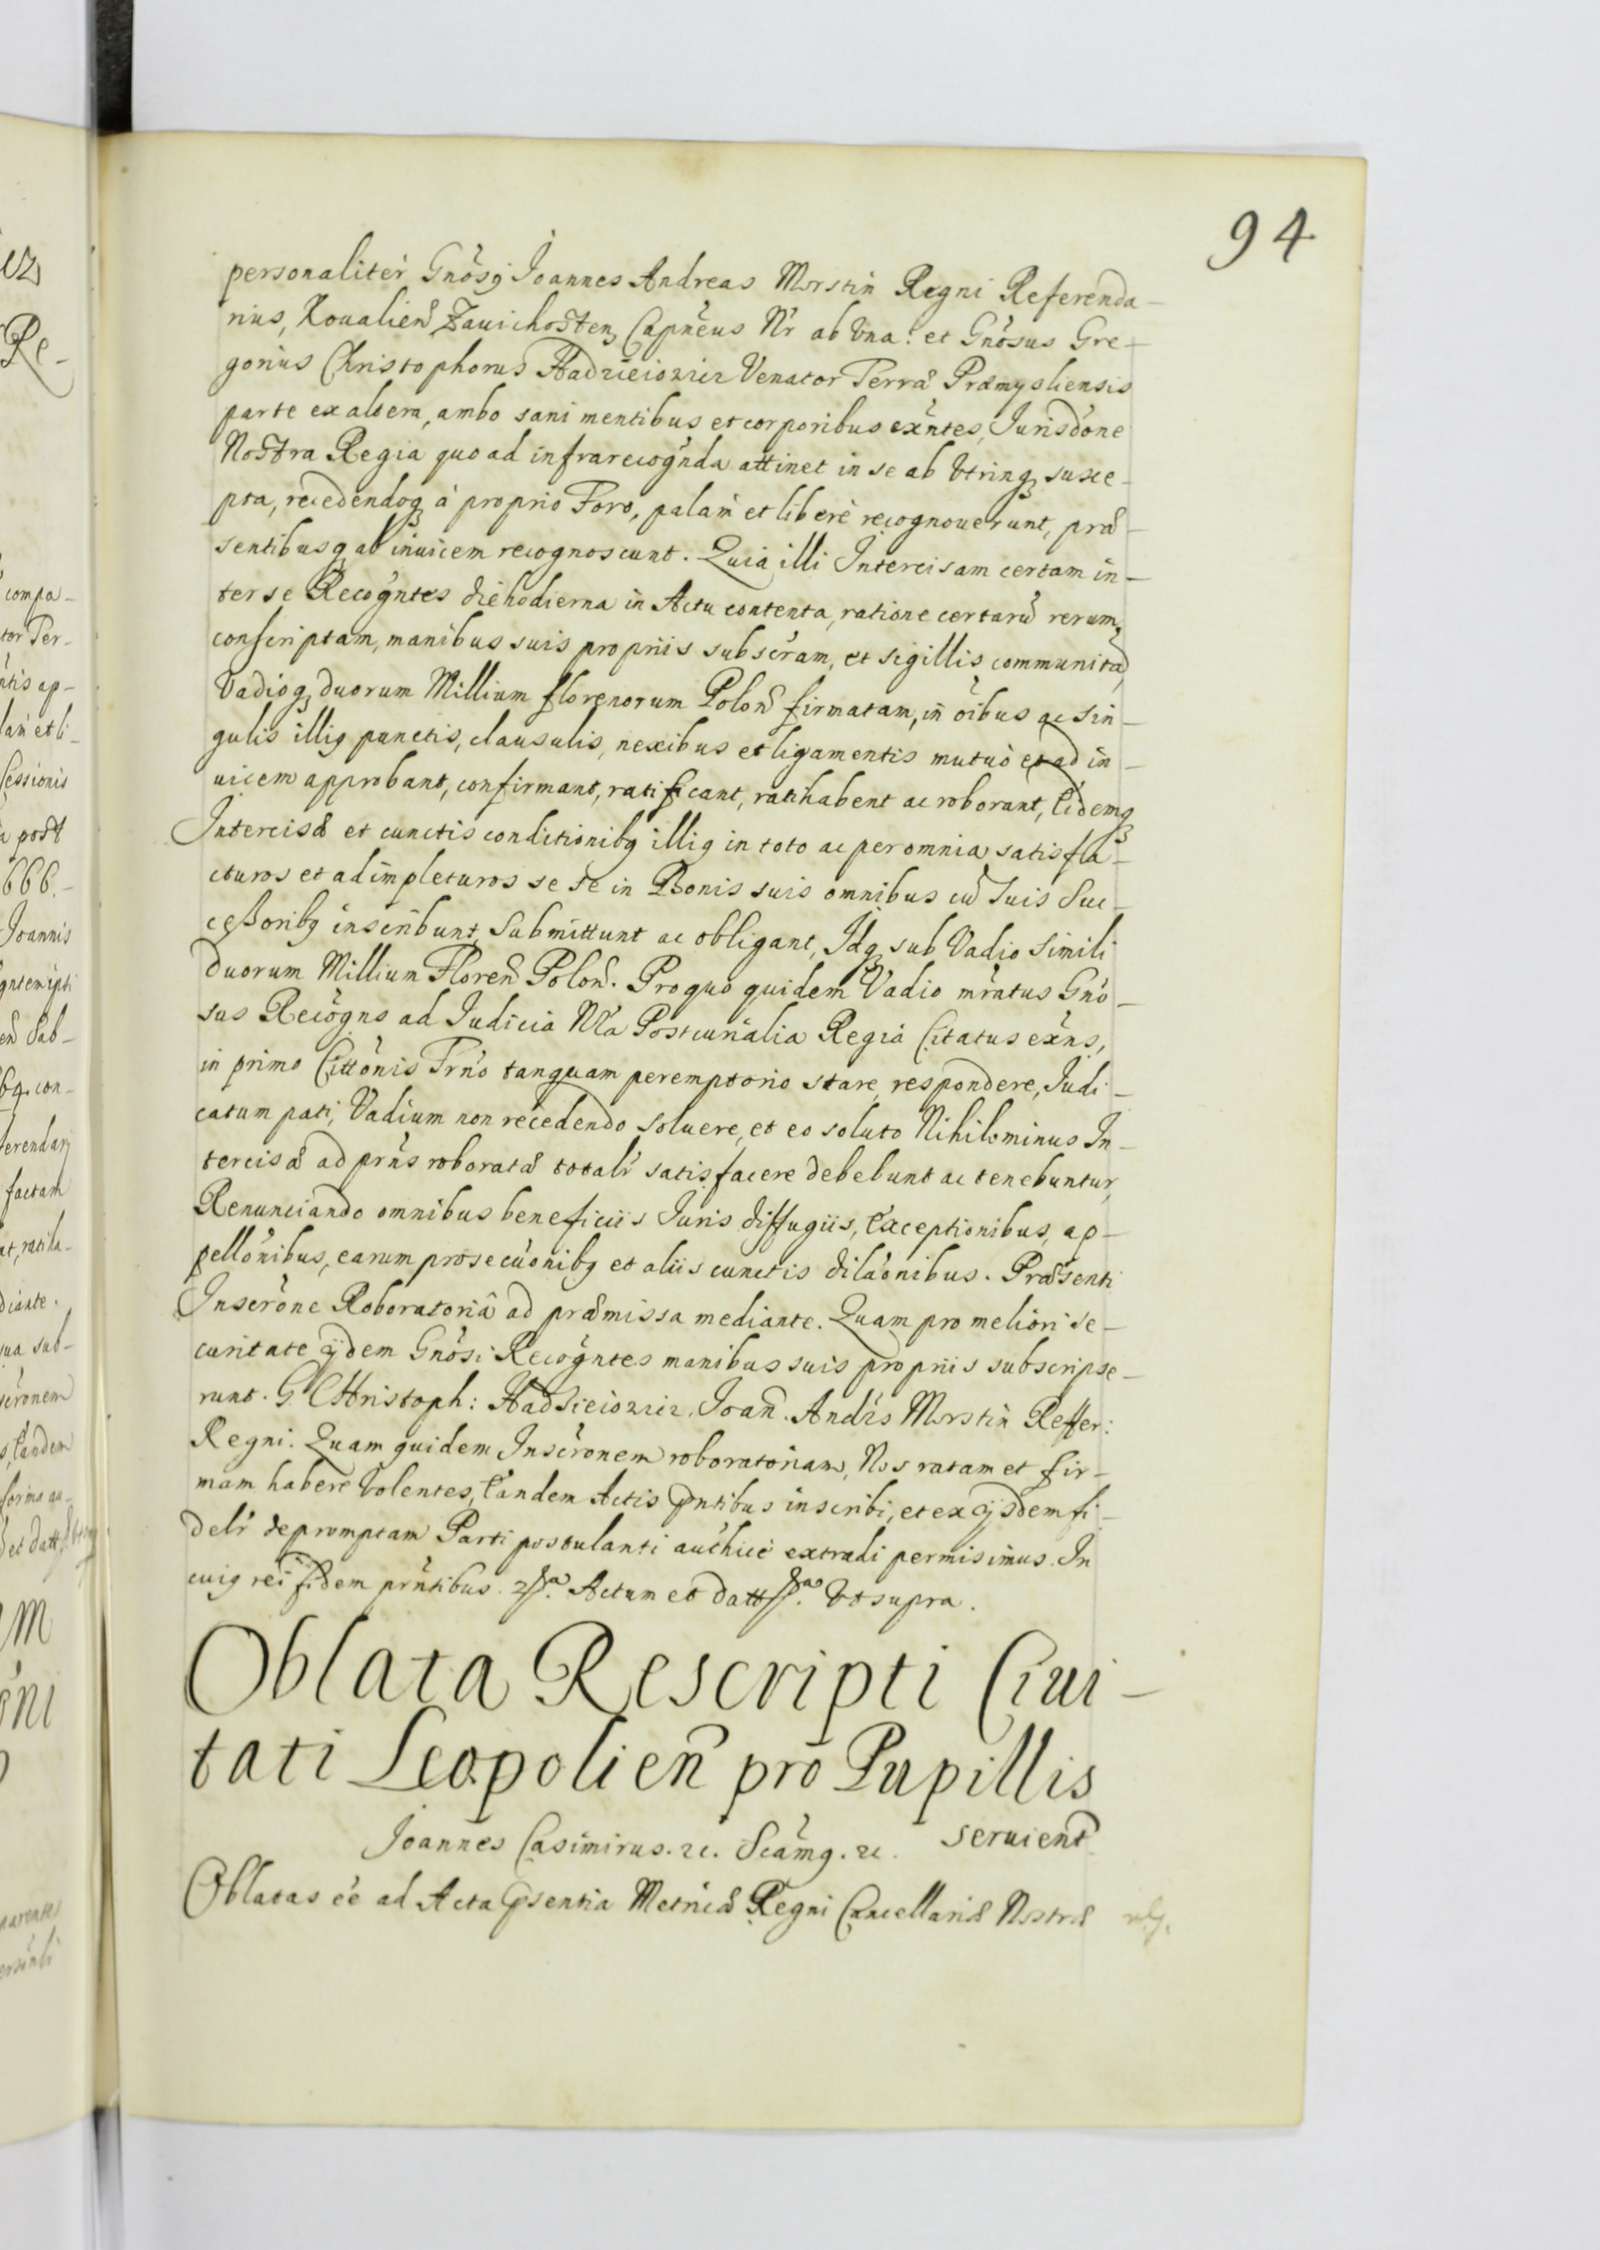 94
personaliter Gnõsq Joannes Andreas Morstin Regni Referenda-
rius, Koualień Zauichosten Capnẽus Nr̃ ab Vna: et Gnõsus Gre-
gorius Christophorus Hadzieiowicz Venator Terræ Præmysliensis
parte ex altera, ambo sani mentibus et corporibus exñtes, Jurisdõne
Nostra Regia quo ad infrarecogñda attinet in se ab Vtrinq suxce-
pta, recedendoq à proprio Foro, palam et liberè recognouerunt, præ-
sentibusq ab inuicem recognoscunt. Quia illi Intercisam certam in-
ter se Recogñtes die hodierna in Actu contenta, ratione certarũ rerum,
conscriptam, manibus suis proprijs subscr̃am, et sigillis communitã,
Vadioq duorum Millium florenorum Poloń firmatam, in oĩbus ac sin-
gulis illiq punctis, clausulis, nexibus et ligamentis mutuò et ad in-
uicem approbant, confirmant, ratificant, ratihabent ac roborant, Eidemq
Intercisæ et cunctis conditionibq illiq in toto ac per omnia satisfa-
cturos et adimpleturos se se in Bonis suis omnibus cũ suis Suc-
cessoribq inscribunt, Submittunt ac obligant, Idq sub Vadio simili
duorum Millium Floreń Poloń. Pro quo quidem Vadio mr̃atus Gnõ-
sus Recogñs ad Judicia Nr̃a Postcurialia Regia Citatus exñs,
in primo Cittõnis Trñó tanquam peremptorio stare, respondere, Judi-
catum pati, Vadium non recedendo soluere, et eo soluto Nihilominus In-
tercisæ ad prñs roboratæ totalr̃ satisfacere debebunt ac tenebuntur,
Renunciando omnibus beneficiis Juris diffugiis, Exceptionibus, ap-
pellõnibus, earum prosecuõnibq et aliis cunctis dilãonibus. Præsenti
Inscrõne Roboratoriâ ad præmissa mediante. Quam pro meliori se-
curitate ijdem Gnõsi Recogñtes manibus suis propriis subscripse-
runt. G. CHristoph: Hadzieiowicz. Joań. Andr̃s Morstin Reffer:
Regni. Quam quidem Inscrõnem roboratoriam, Nos ratam et fir-
mam habere Volentes, Eandem Actis pñtibus inscribi, et ex ijsdem fi-
delr̃ depromptam Parti postulanti authicè extradi permisimus. In
cuiq rei fidem prñtibus. Actum et datt. Vt supra.
Oblata Rescripti Ciui-
tati Leopolień pro Pupillis
seruient
Joannes Casimirus. zc. Scãmq. zc.
Oblatas eẽ ad Acta Pñsentia Metricæ Regni Cancellariæ Nostræ